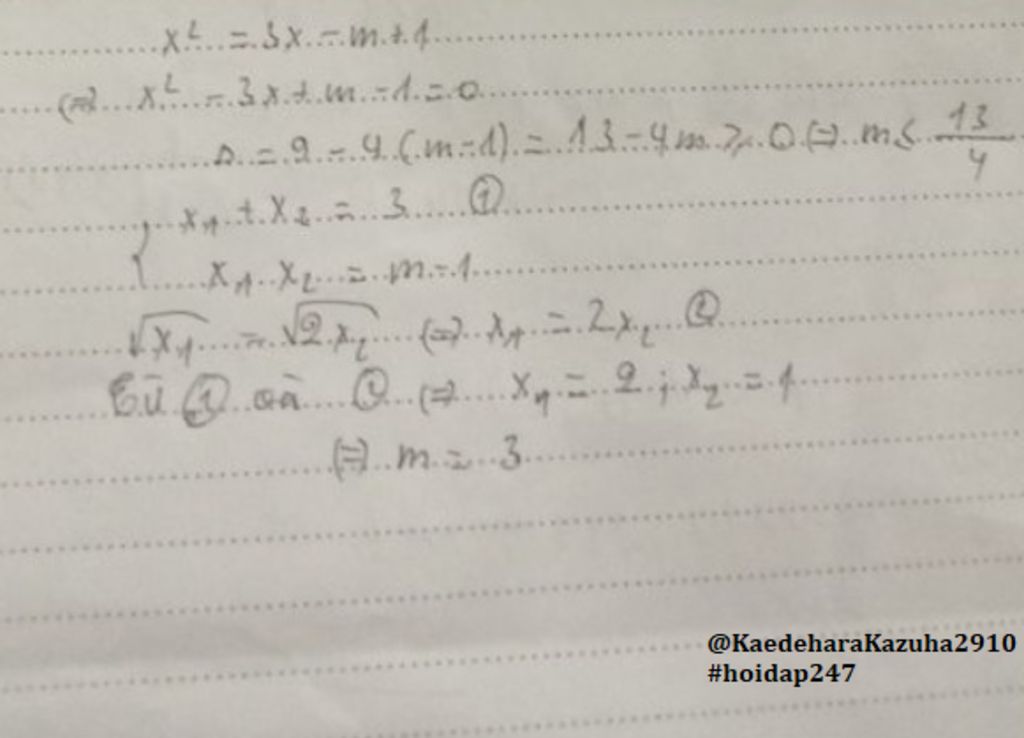 x² = 3x - m + 1
(=) x² - 3x + m - 1 = 0
Δ = 9 - 4(m - 1) = 13 - 4m ≥ 0 (=) m ≤ 13/4
{ x₁ + x₂ = 3 ①
x₁ x₂ = m - 1
√x₁ = √2x₂ (=) x₁ = 2x₂ ②
Từ ① và ② (=) x₁ = 2 ; x₂ = 1
(=) m = 3
@KaedeharaKazuha2910
#hoidap247